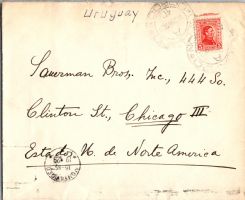 Uruguay
Sauerman Bros. Inc., 444 So.
Clinton St., Chicago Ill
Estados U. de Norte America